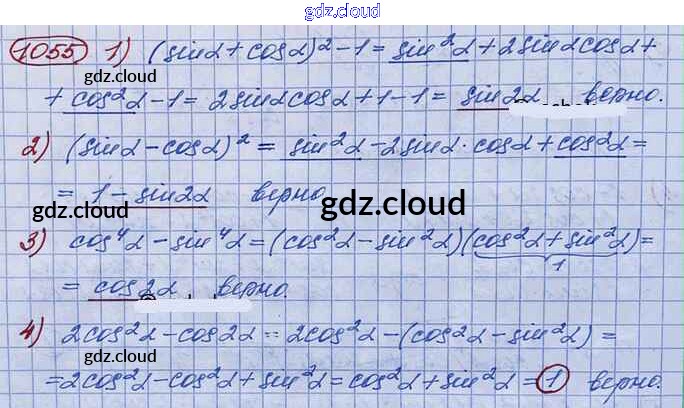 gdz.cloud
1055 1) (sinα + cosα)² - 1 = sin²α + 2sinαcosα +
gdz.cloud
+ cos²α - 1 = 2sinαcosα + 1 - 1 = sin2α верно.
2) (sinα - cosα)² = sin²α - 2sinα·cosα + cos²α =
= 1 - sin2α верно
gdz.cloud
gdz.cloud
gdz.cloud
3) cos⁴α - sin⁴α = (cos²α - sin²α)(cos²α + sin²α) =
1
= cos2α верно.
4) 2cos²α - cos2α = 2cos²α - (cos²α - sin²α) =
gdz.cloud
= 2cos²α - cos²α + sin²α = cos²α + sin²α = 1 верно.